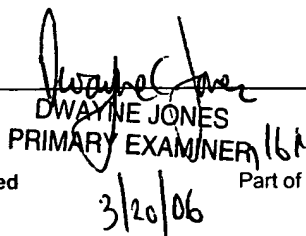 Dwayne C Jones
DWAYNE JONES
PRIMARY EXAMINER
ed
Part of
3/20/06